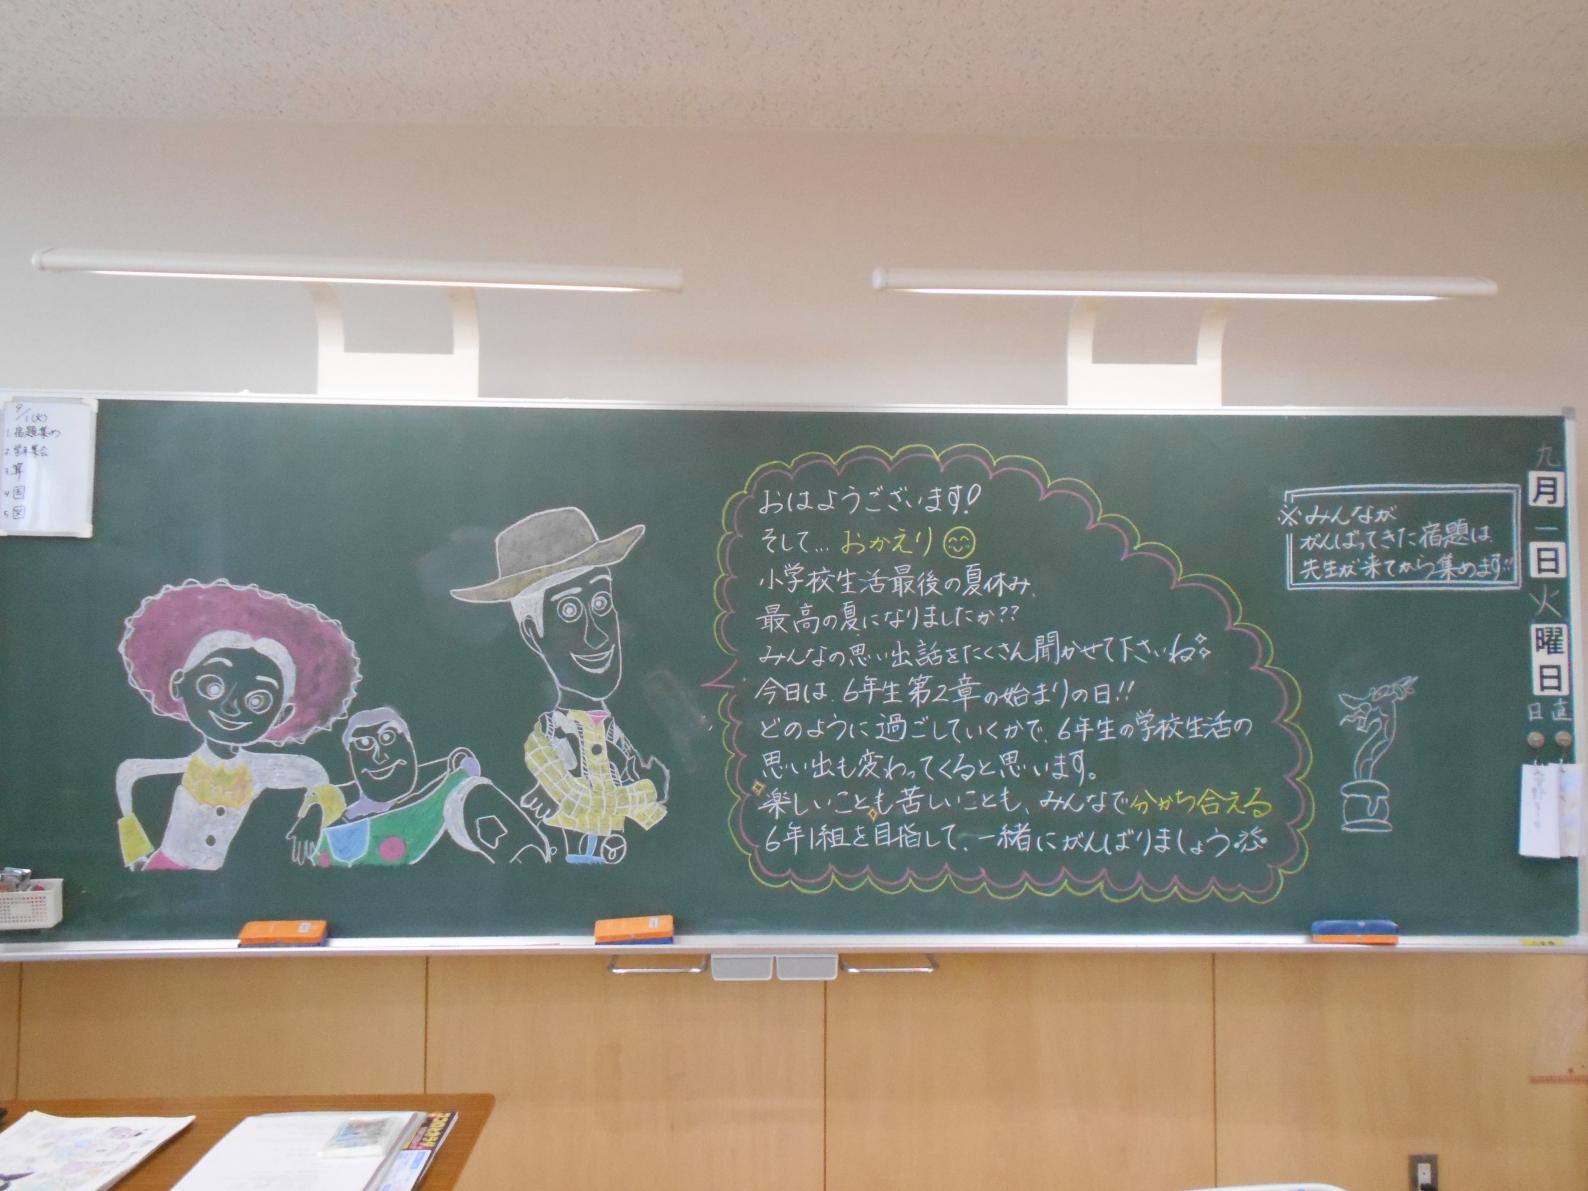 9/1(火)
1.宿題集め
2.学年集会
3.算
4.国
5.図
おはようございます!
そして…おかえり
小学校生活最後の夏休み、
最高の夏になりましたか??
みんなの思い出話をたくさん聞かせて下さいね
今日は、6年生第2章の始まりの日!!
どのように過ごしていくかで、6年生の学校生活の
思い出も変わってくると思います。
楽しいことも苦しいことも、みんなで分かち合える
6年1組を目指して、一緒にがんばりましょう
※みんなが
がんばってきた宿題は
先生が来てから集めます!!
九
月
一
日
火
曜
日
日直